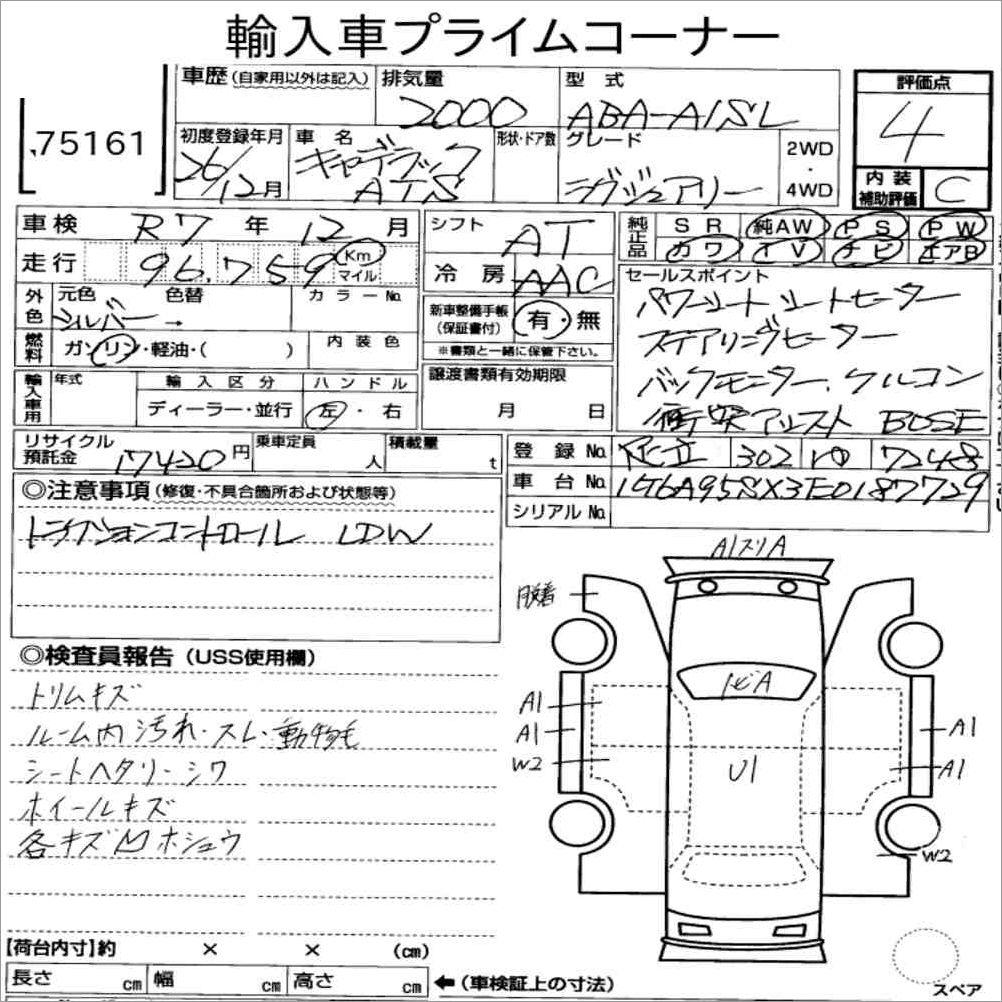 輸入車プライムコーナー
75161
車歴 (自家用以外は記入) 排気量 型式 評価点
2000 ABA-A1SL 4
初度登録年月 車名 形状・ドア数 グレード 2WD・4WD
26/12月 キャデラック ATS ラグジュアリー
内装補助評価 C
車検 R7年 12月 シフト AT 純正品 SR 純AW PS PW
走行 96,759 Km マイル 冷房 AAC カワ TV ナビ エアB
外色 元色 色替 カラーNo. 新車整備手帳(保証書付) 有・無 セールスポイント
シルバー→ パワーシート シートヒーター
燃料 ガソリン・軽油・( ) 内装色 ※書類と一緒に保管下さい。 ステアリングヒーター
輸入車用 年式 輸入区分 ハンドル 譲渡書類有効期限 バックモニター、クルコン
ディーラー・並行 左・右 月 日 衝突アシスト BOSE
リサイクル預託金 17420円 乗車定員 人 積載量 t 登録No. 足立 302 ゆ 7248
車台No. 1G6A95SX3E0187729
シリアルNo.
◎注意事項 (修復・不具合箇所および状態等)
トラクションコントロール LDW
◎検査員報告 (USS使用欄)
トリムキズ
ルーム内汚れ・スレ・動物毛
シートヘタリ・シワ
ホイールキズ
各キズMホシュウ
A1スリA
脱着
トビA
A1
A1
W2
U1
A1
A1
W2
【荷台内寸】約 × × (cm)
長さ cm 幅 cm 高さ cm ←(車検証上の寸法)
スペア